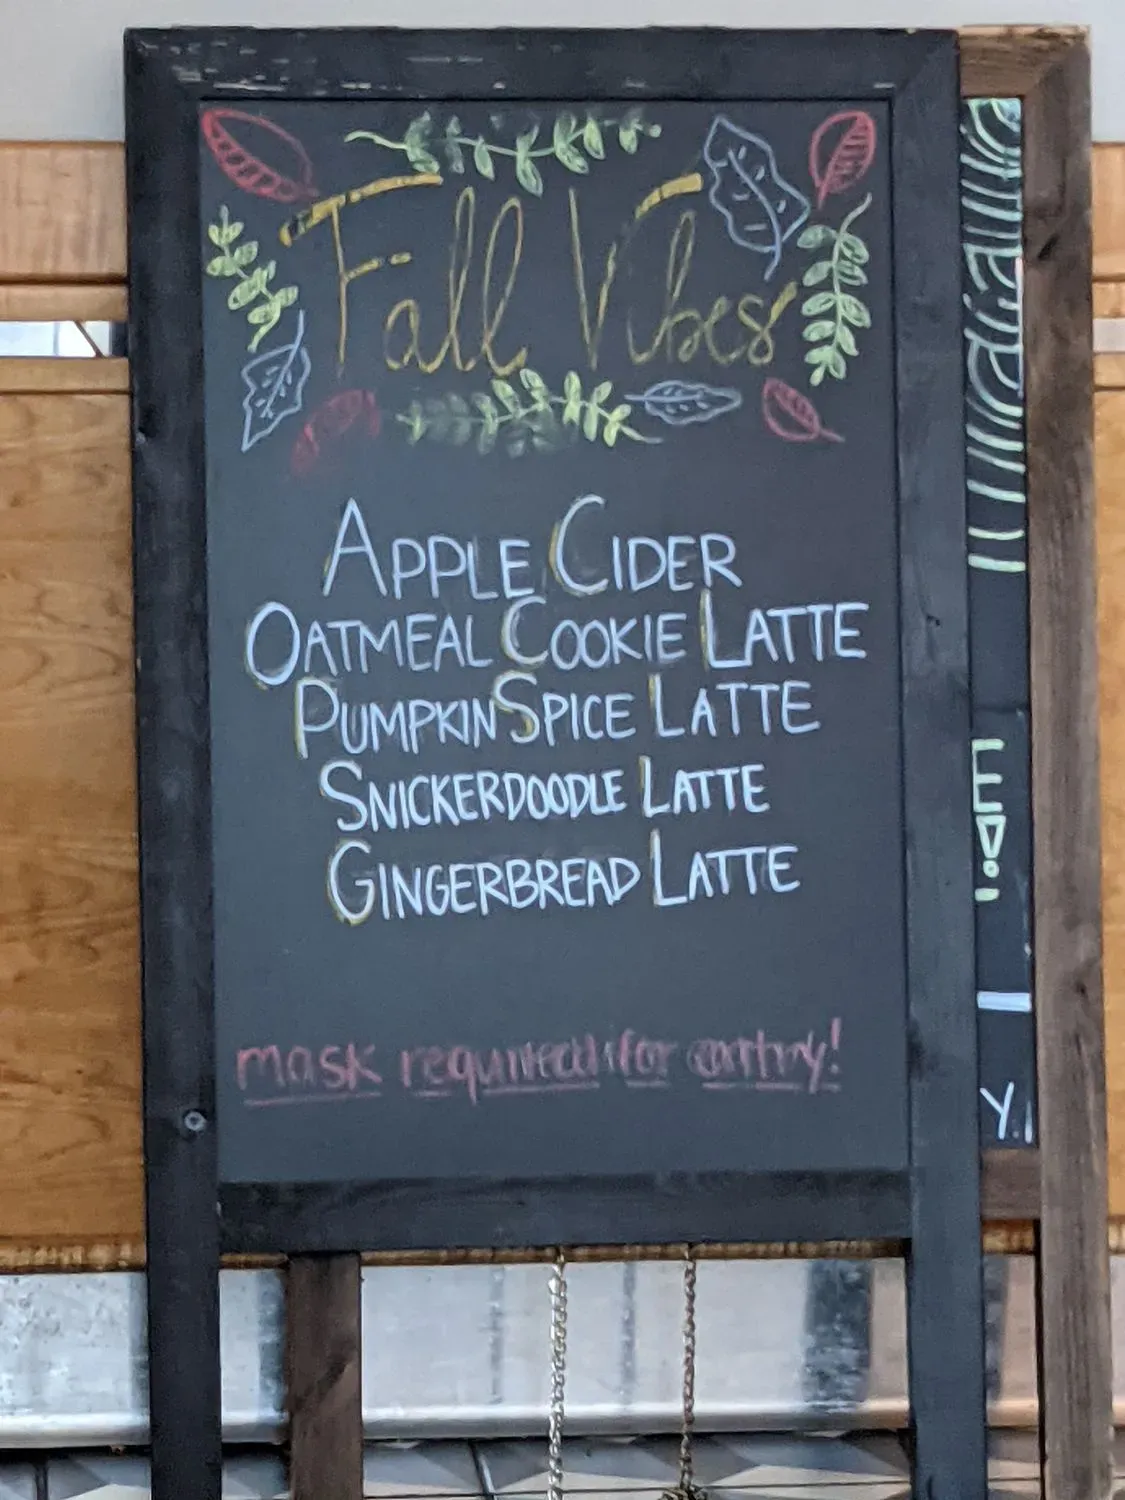 Fall Vibes
APPLE CIDER
OATMEAL COOKIE LATTE
PUMPKIN SPICE LATTE
SNICKERDOODLE LATTE
GINGERBREAD LATTE
mask required for entry!